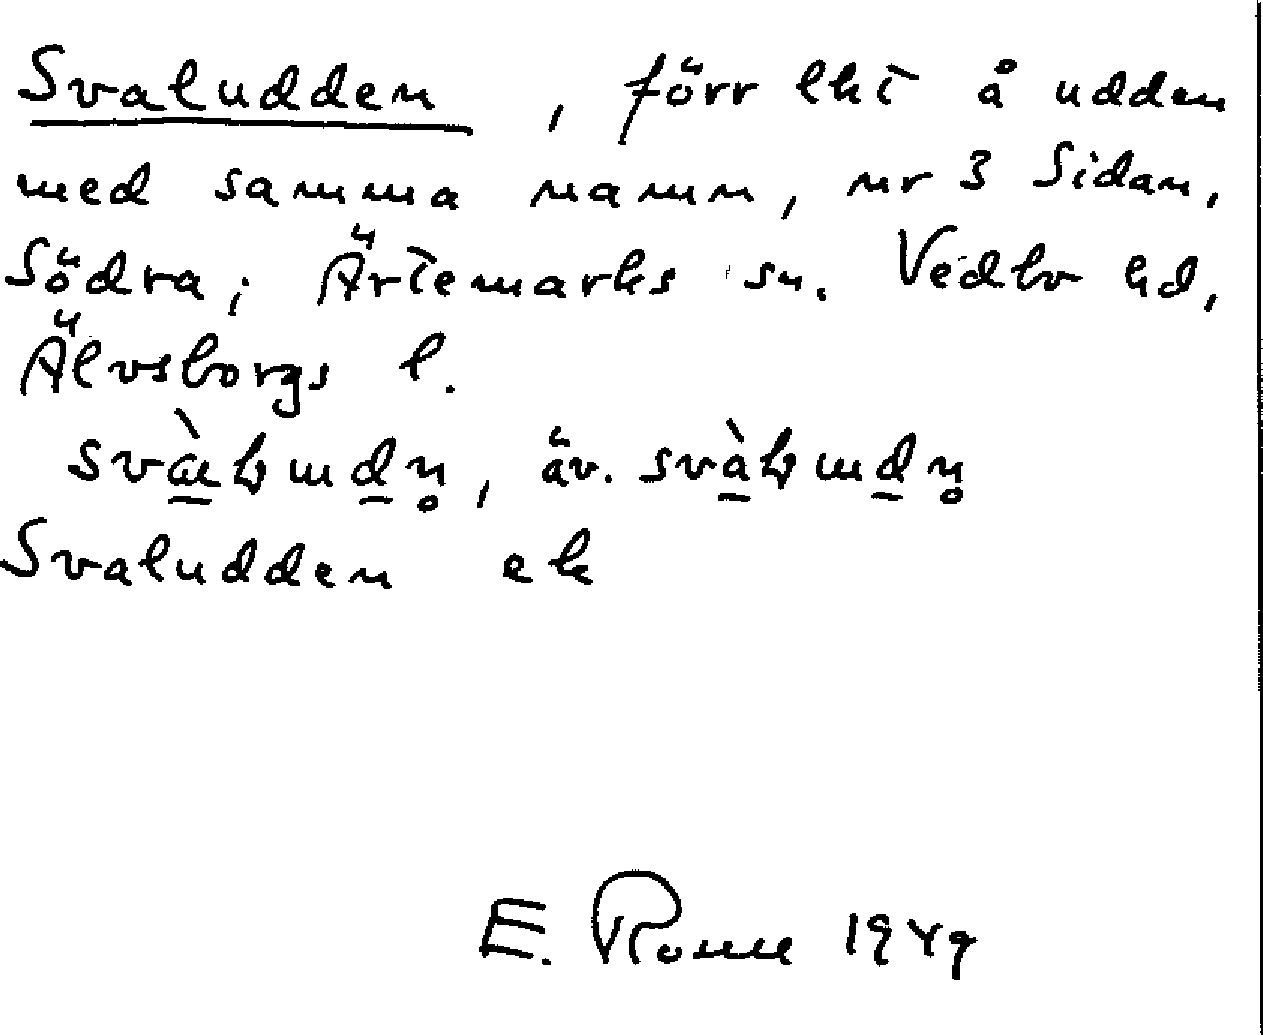 Svaludden, förr lht å udden
med samma namn, nr 3 Sidan,
Södra; Ärtemarks sn. Vedbo hd,
Älvsborgs l.
äv.
Svaludden ek
E. 1949